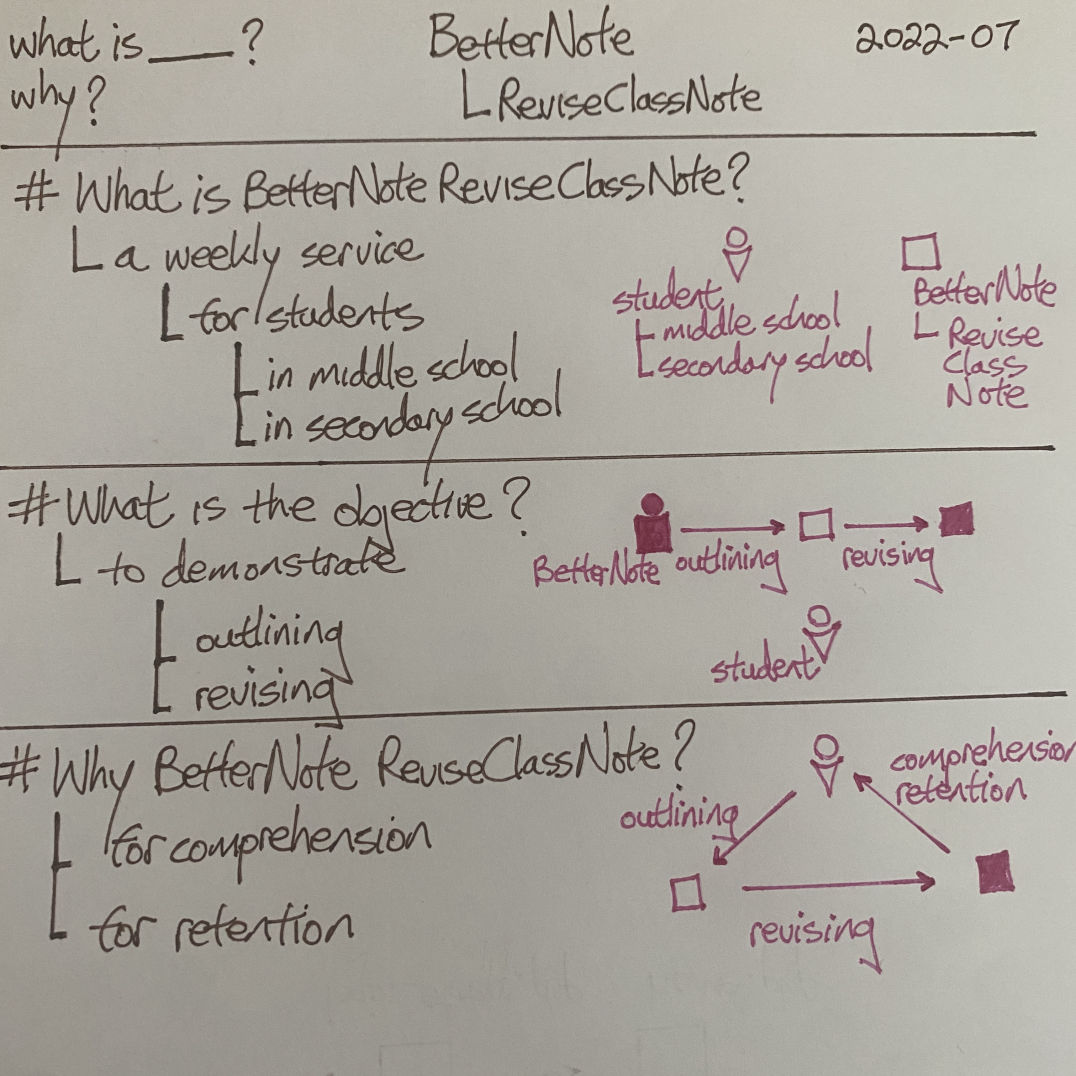 what is ____ ?
why?
BetterNote
ReviseClassNote
2022-07
# What is BetterNote ReviseClassNote?
a weekly service
for students
in middle school
in secondary school
student
middle school
secondary school
BetterNote
Revise
Class
Note
# What is the objective?
to demonstrate
outlining
revising
BetterNote
outlining
revising
student
# Why BetterNote ReviseClassNote?
for comprehension
for retention
outlining
comprehension
retention
revising